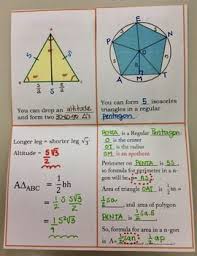 5
5
5/2
5/2
You can drop an altitude
and form two 30-60-90 Δ's
E
P
N
O
A
M
T
You can form 5 isosceles
triangles in a regular
Pentagon
Longer leg = shorter leg √3
Altitude = 5√3/2
AΔABC = 1/2 bh
= 1/2 · 5 · 5√3/2
= 1/2 5²√3/2
PENTA is a Regular Pentagon
O is the center
OT is the radius
OM is an apothem
Perimeter on PENTA is 5S
so formula for perimeter in a n-
gon will be nS
Area of triangle OAT is 1/2 sa
and area of polygon
PENTA is 1/2 5as
So, formula for area in a n-gon